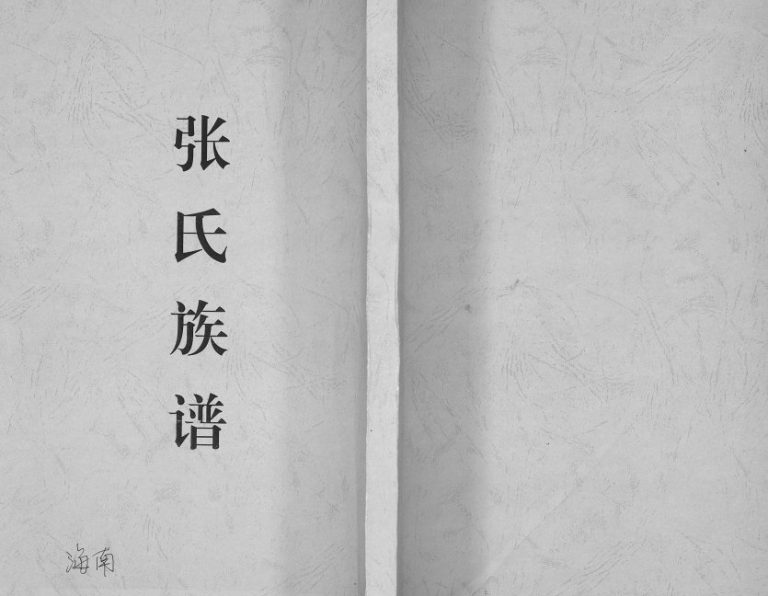 张氏族谱
海南